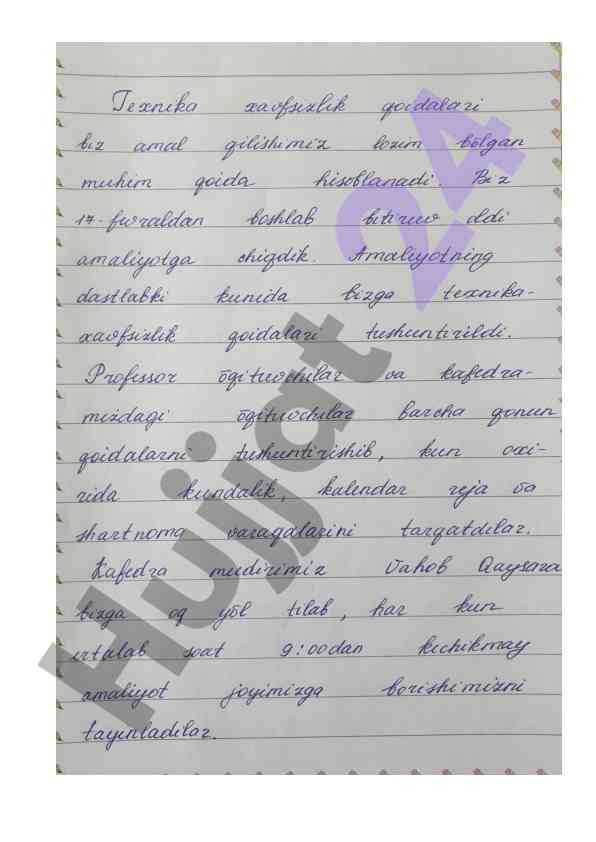 Texnika xavfsizlik qoidalari
biz amal qilishimiz lozim bõlgan
muhim qoida hisoblanadi. Biz
17-fevraldan boshlab bitiruv oldi
amaliyotga chiqdik. Amaliyotning
dastlabki kunida bizga texnika-
xavfsizlik qoidalari tushuntirildi.
Professor õqituvchilar va kafedra-
mizdagi õqituvchilar barcha qonun
qoidalarni tushuntirishib, kun oxi-
rida kundalik, kalendar reja va
shartnoma varaqalarini tarqatdilar.
Kafedra mudirimiz Vahob
bizga oq yõl tilab, har kun
ertalab soat 9:00dan kechikmay
amaliyot joyimizga borishimizni
tayinladilar.
Hujjat 24